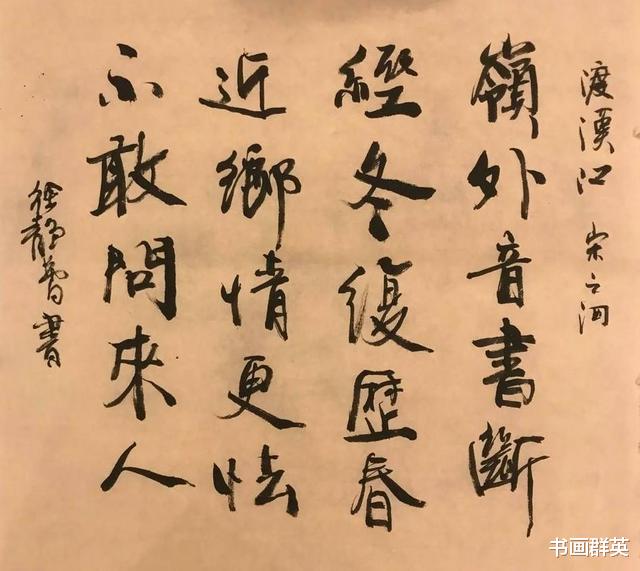 渡漢江 宋之问
嶺外音書斷
經冬復歷春
近鄉情更怯
不敢問來人
徐静書
书画群英